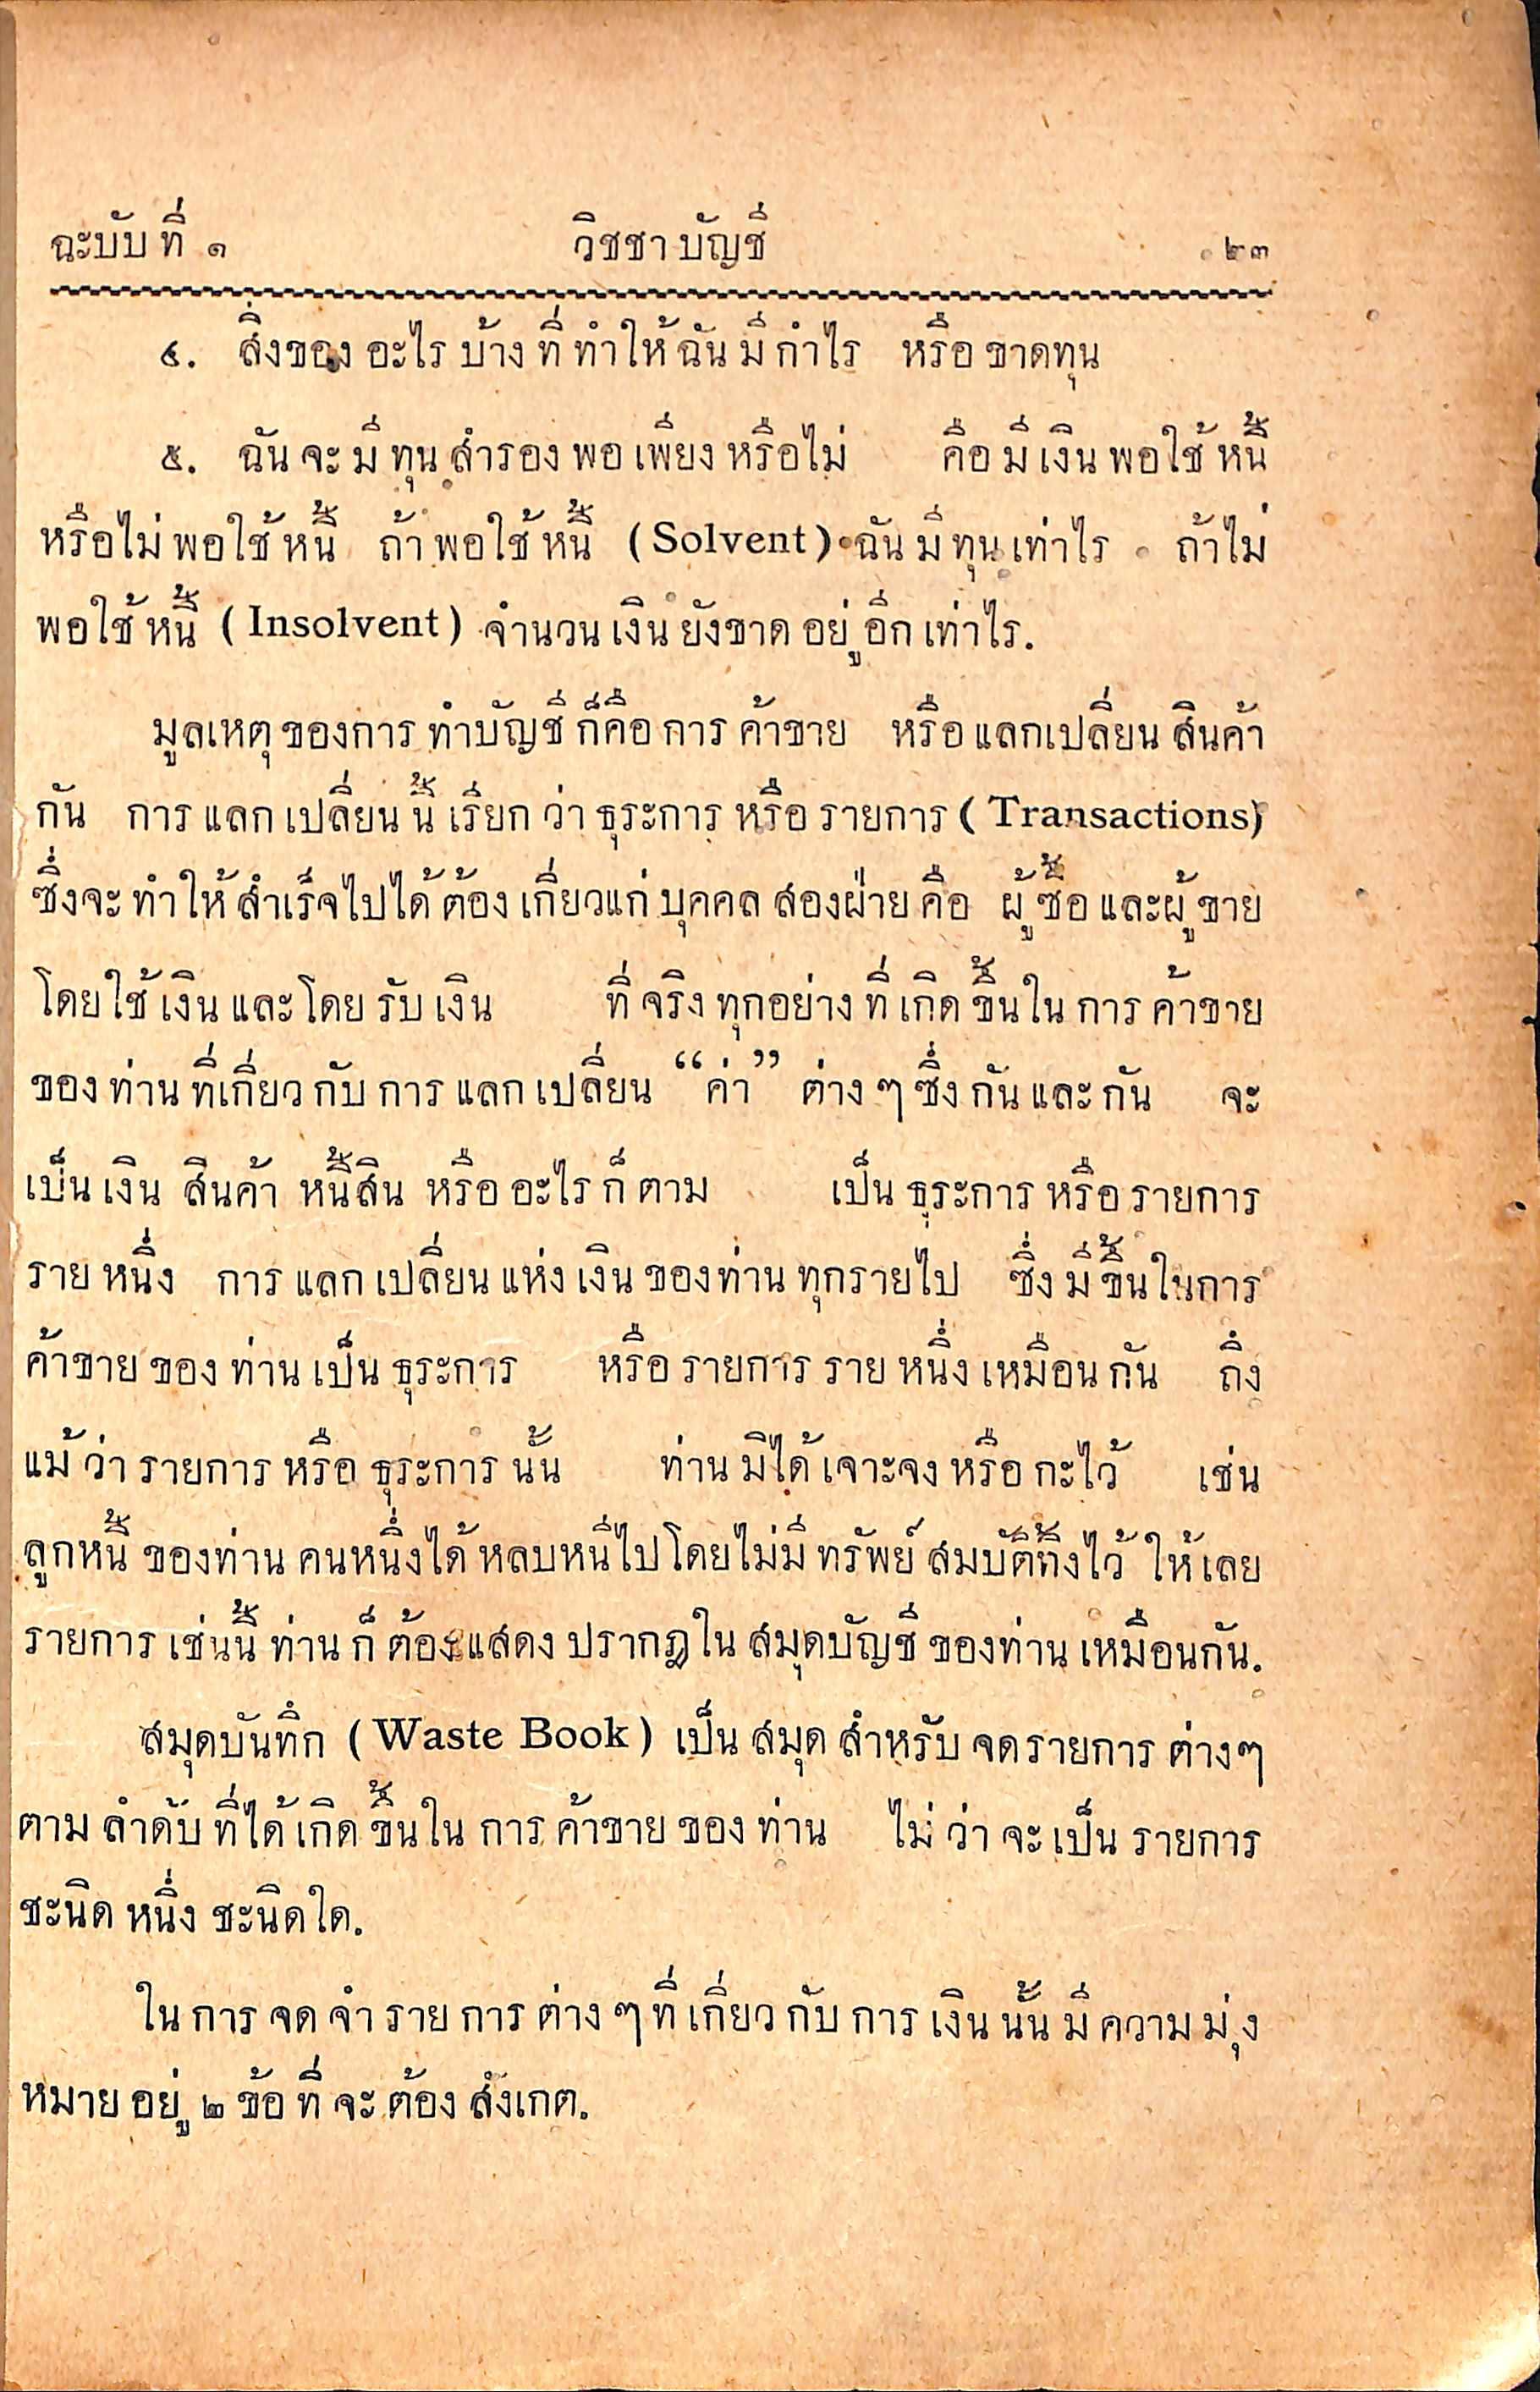 ฉะบับ ที่ ๑ วิชชา บัญชี ๒๓
๔. สิ่งของ อะไร บ้าง ที่ ทำให้ ฉัน มี กำไร หรือ ขาดทุน
๕. ฉัน จะ มี ทุน สำรอง พอ เพียง หรือไม่ คือ มี เงิน พอใช้ หนี้
หรือไม่ พอใช้ หนี้ ถ้า พอใช้ หนี้ (Solvent) ฉัน มี ทุน เท่าไร ถ้าไม่
พอใช้ หนี้ (Insolvent) จำนวน เงิน ยังขาด อยู่ อีก เท่าไร.
มูลเหตุ ของการ ทำบัญชี ก็คือ การ ค้าขาย หรือ แลกเปลี่ยน สินค้า
กัน การ แลก เปลี่ยน นี้ เรียก ว่า ธุระการ หรือ รายการ (Transactions)
ซึ่งจะ ทำให้ สำเร็จไปได้ ต้อง เกี่ยวแก่ บุคคล สองฝ่าย คือ ผู้ ซื้อ และผู้ ขาย
โดยใช้ เงิน และโดย รับ เงิน ที่ จริง ทุกอย่าง ที่ เกิด ขึ้นใน การ ค้าขาย
ของ ท่าน ที่เกี่ยว กับ การ แลก เปลี่ยน “ค่า” ต่าง ๆ ซึ่ง กัน และ กัน จะ
เป็น เงิน สินค้า หนี้สิน หรือ อะไร ก็ ตาม เป็น ธุระการ หรือ รายการ
ราย หนึ่ง การ แลก เปลี่ยน แห่ง เงิน ของท่าน ทุกรายไป ซึ่ง มี ขึ้นในการ
ค้าขาย ของ ท่าน เป็น ธุระการ หรือ รายการ ราย หนึ่ง เหมือน กัน ถึง
แม้ ว่า รายการ หรือ ธุระการ นั้น ท่าน มิได้ เจาะจง หรือ กะไว้ เช่น
ลูกหนี้ ของท่าน คนหนึ่งได้ หลบหนีไป โดยไม่มี ทรัพย์ สมบัติทิ้งไว้ ให้ เลย
รายการ เช่นนี้ ท่าน ก็ ต้อง แสดง ปรากฏใน สมุดบัญชี ของท่าน เหมือนกัน.
สมุดบันทึก (Waste Book) เป็น สมุด สำหรับ จด รายการ ต่างๆ
ตาม ลำดับ ที่ได้ เกิด ขึ้นใน การ ค้าขาย ของ ท่าน ไม่ ว่า จะ เป็น รายการ
ชะนิด หนึ่ง ชะนิดใด.
ใน การ จด จำ ราย การ ต่าง ๆ ที่ เกี่ยว กับ การ เงิน นั้น มี ความ มุ่ง
หมาย อยู่ ๒ ข้อ ที่ จะ ต้อง สังเกต.